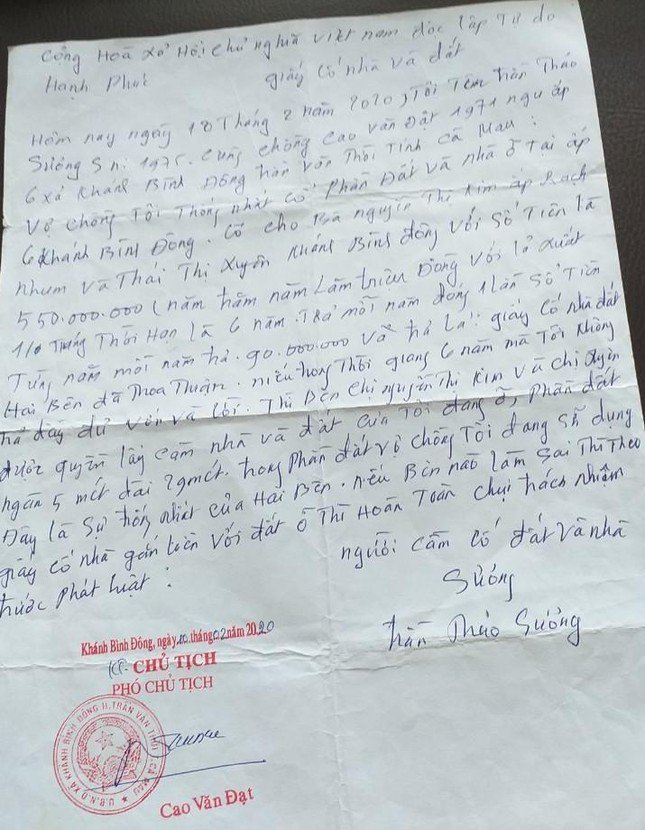 Cộng Hoà Xã Hội chủ nghĩa Việt nam độc lập Tự do
Hạnh Phúc giấy Cố nhà và đất
Hôm nay ngày 18 Tháng 2 năm 2020, Tôi Tên Trần Thảo
Sương Sn: 1975. Cùng chồng Cao Văn Đạt 1971 ngụ ấp
6 xã Khánh Bình Đông Trần Văn Thời Tỉnh Cà Mau:
Vợ chồng Tôi Thống nhất Cố Phần Đất và nhà ở Tại ấp
6 Khánh Bình Đông. Cố cho Bà nguyễn Thị Kim ấp Rạch
nhum và Thái Thị Xuyên Khánh Bình đông Với Số Tiền là
550.000.000 (năm Trăm năm Lăm triệu Đồng Với lả Xuất
1/0 Tháng Thời Hạn là 6 năm. Trả mỗi năm đóng 1 lần Số Tiền
Từng năm mỗi năm trả. 90.000.000 và trả lại giấy Cố nhà đất
Hai Bên đã Thoa Thuận. niếu trong Thời giang 6 năm mà Tôi không
trả đầy đủ Vốn và lời. Thì Đến Chị nguyễn Thị Kim và chị
được quyền lấy căm nhà và đất của Tôi đang ở, Phần đất
ngan 5 mét dài 29 mét. trong Phần đất vợ chồng Tôi đang Sử dụng
Đây là Sự thống nhất của Hai Bên. nếu Bên nào làm Sai Thì Theo
giấy cố nhà gắn liền với đất ở Thì Hoàn Toàn chịu trách nhiệm
trước Phát luật:
người Cầm Cố đất và nhà
Sương
Trần Thảo Sương
Khánh Bình Đông, ngày 20 tháng 02 năm 2020
KT. CHỦ TỊCH
PHÓ CHỦ TỊCH
U.B.N.D XÃ KHÁNH BÌNH ĐÔNG H.TRẦN VĂN THỜI T.CÀ MAU
Cao Văn Đạt